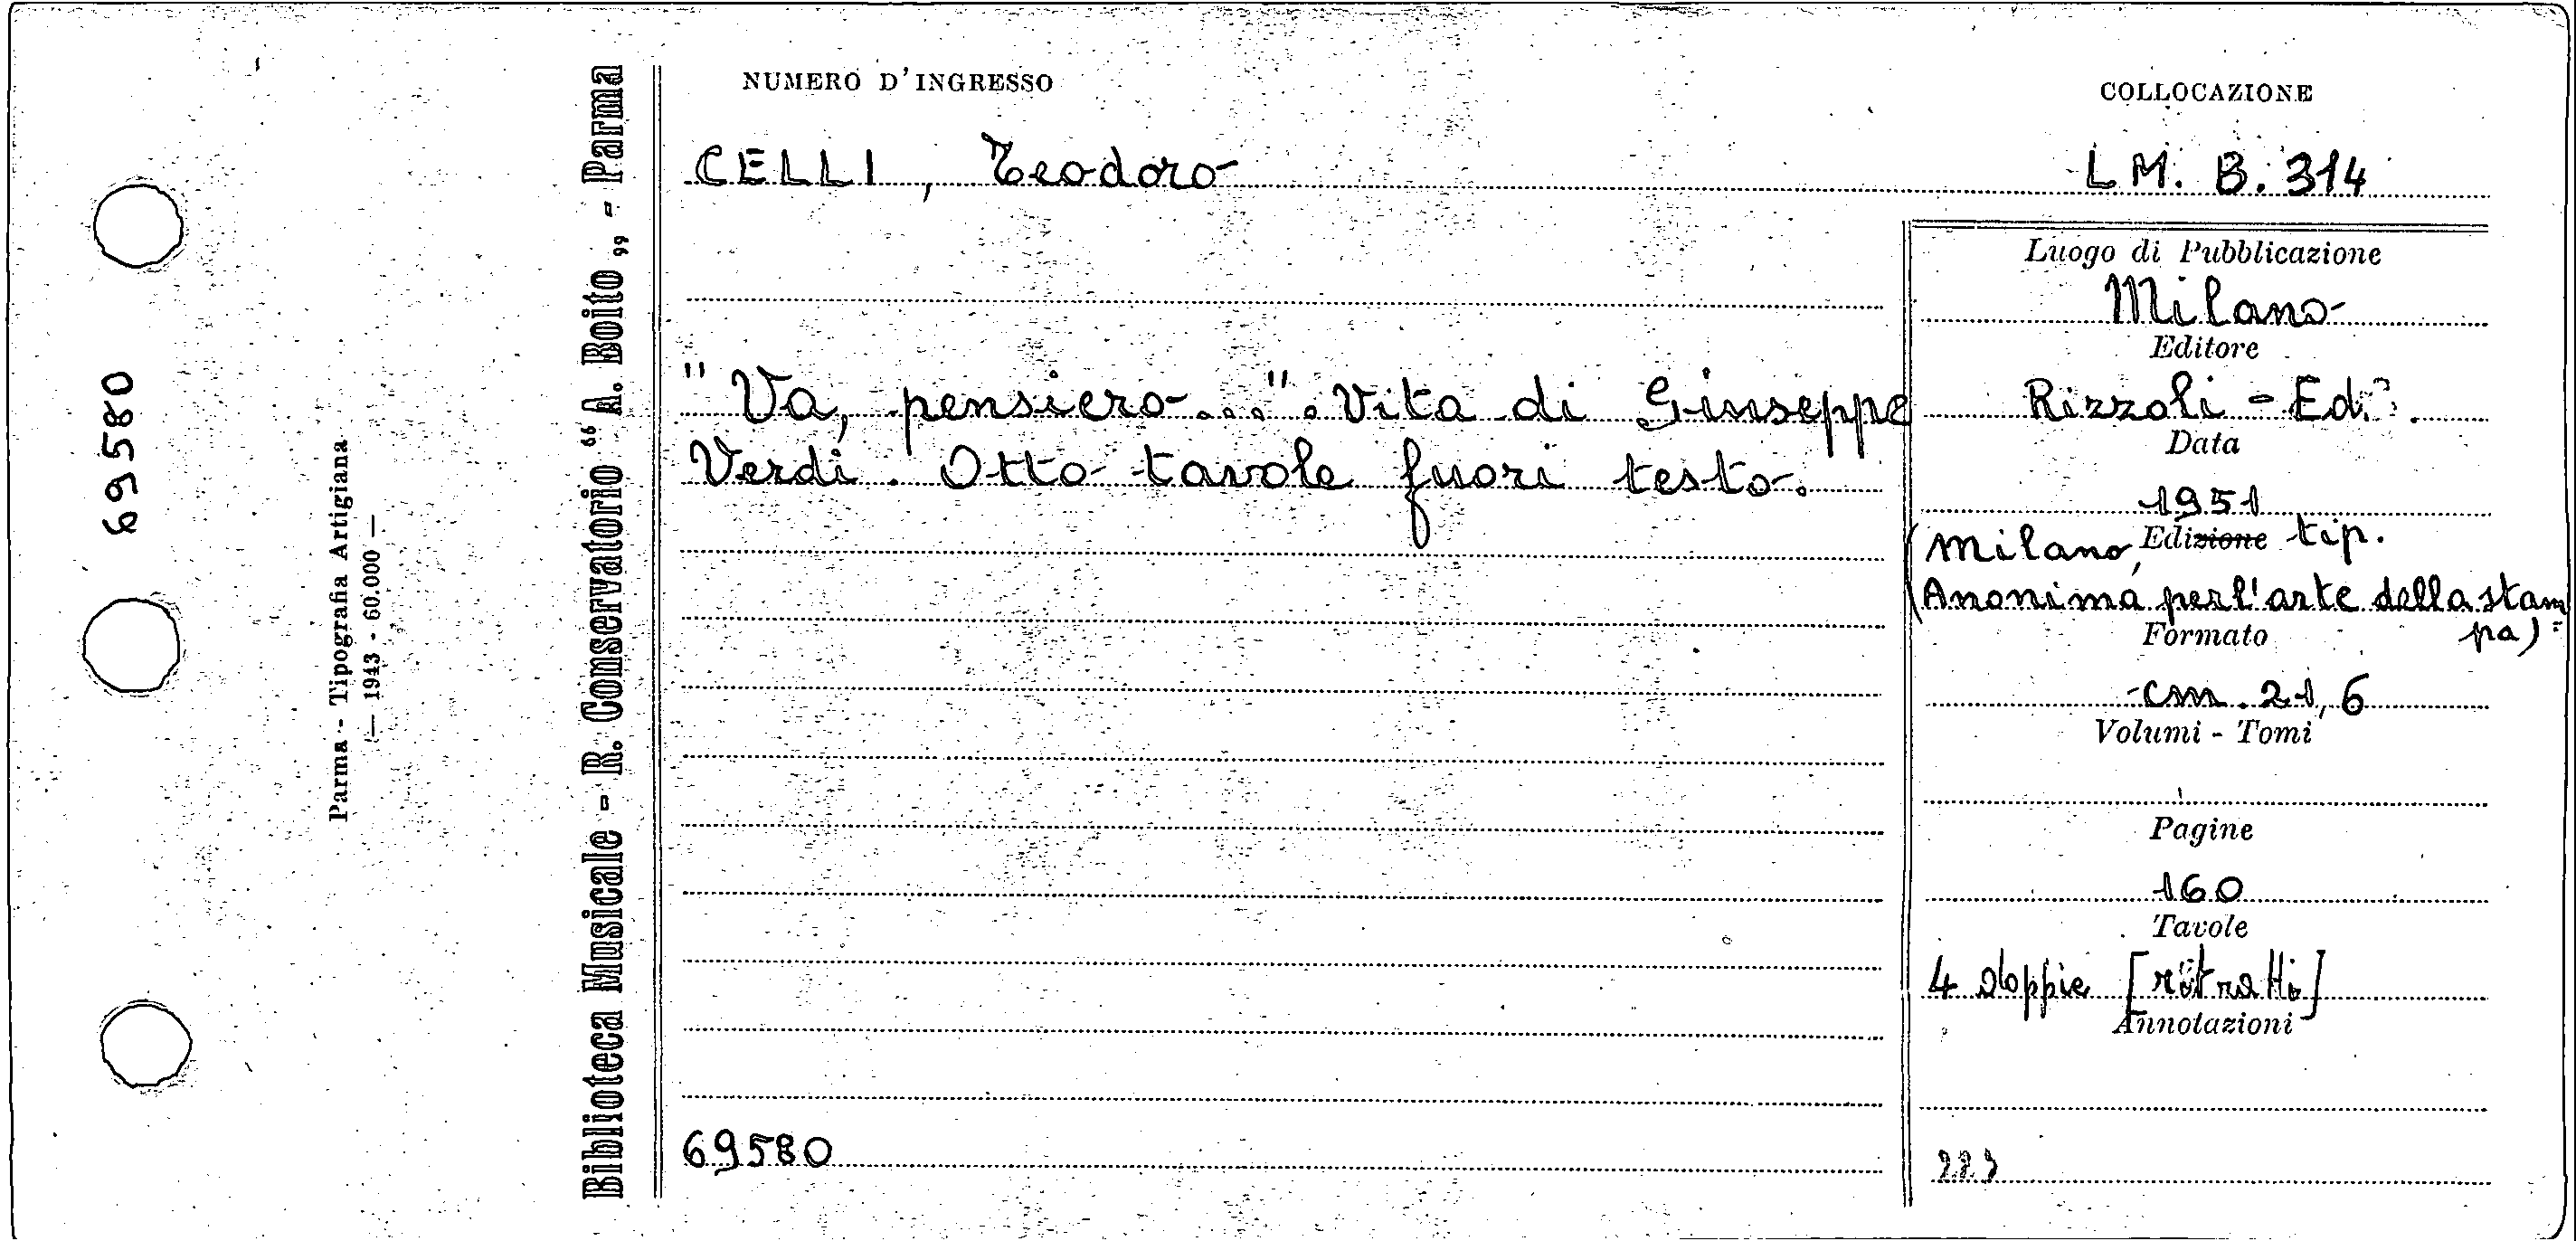 69580
Parma - Tipografia Artigiana
— 1943 - 60.000 —
Biblioteca Musicale - R. Conservatorio “A. Boito„ - Parma
NUMERO D'INGRESSO
COLLOCAZIONE
CELLI, Teodoro
L M. B. 314
"Va, pensiero...". Vita di Giuseppe
Verdi. Otto tavole fuori testo.
69580
Luogo di Pubblicazione
Milano
Editore
Rizzoli - Ed.
Data
1951
Edizione
(Milano, tip.
(Anonima per l'arte della stam
pa)
Formato
cm. 21,6
Volumi - Tomi
Pagine
160
Tavole
4 doppie [ritratti]
Annotazioni